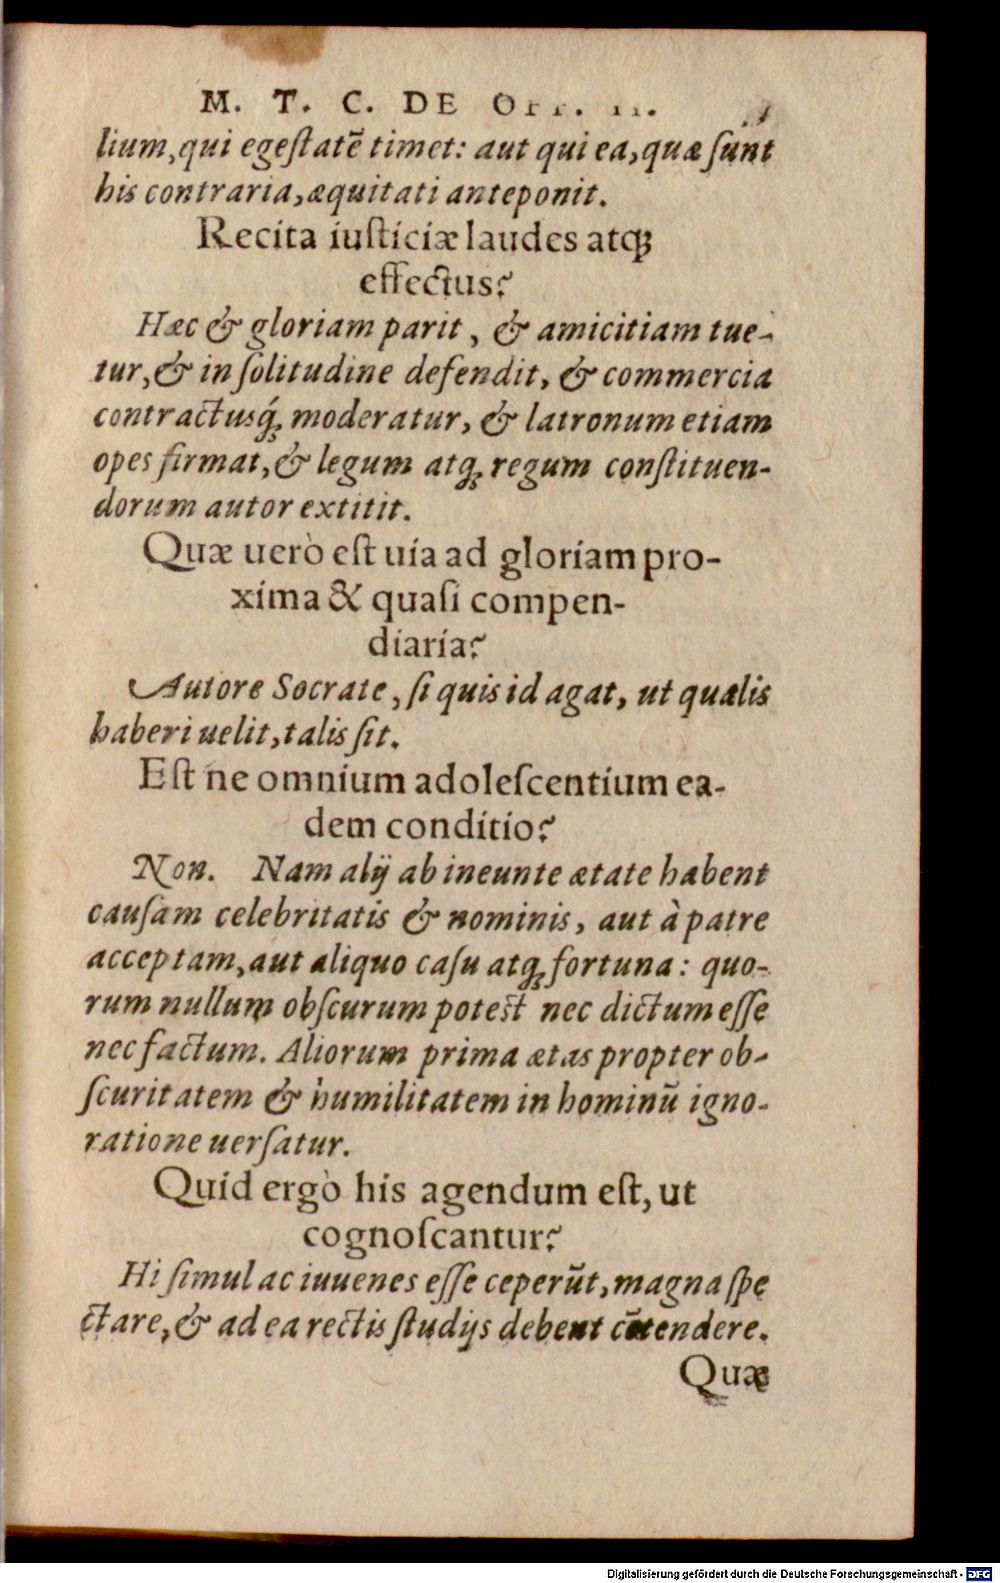 M. T. C. DE OFF. II.
lium, qui egeſtatẽ timet: aut qui ea, quæ ſunt
his contraria, æquitati anteponit.
Recita iuſticiæ laudes atqꝫ
effectus?
Hæc & gloriam parit, & amicitiam tue-
tur, & in ſolitudine defendit, & commercia
contractusq́ꝫ moderatur, & latronum etiam
opes firmat, & legum atqꝫ regum conſtituen-
dorum autor extitit.
Quæ uerò eſt uia ad gloriam pro-
xima & quaſi compen-
diaria?
Autore Socrate, ſi quis id agat, ut qualis
haberi uelit, talis ſit.
Eſt ne omnium adoleſcentium ea-
dem conditio?
Non. Nam alij ab ineunte ætate habent
cauſam celebritatis & nominis, aut à patre
acceptam, aut aliquo caſu atqꝫ fortuna: quo-
rum nullum obſcurum poteſt nec dictum eſſe
nec factum. Aliorum prima ætas propter ob-
ſcuritatem & humilitatem in hominũ igno-
ratione uerſatur.
Quid ergò his agendum eſt, ut
cognoſcantur?
Hi ſimul ac iuuenes eſſe ceperũt, magna ſpe
ctare, & ad ea rectis ſtudijs debent cõtendere.
Quæ
Digitalisierung gefördert durch die Deutsche Forschungsgemeinschaft - DFG